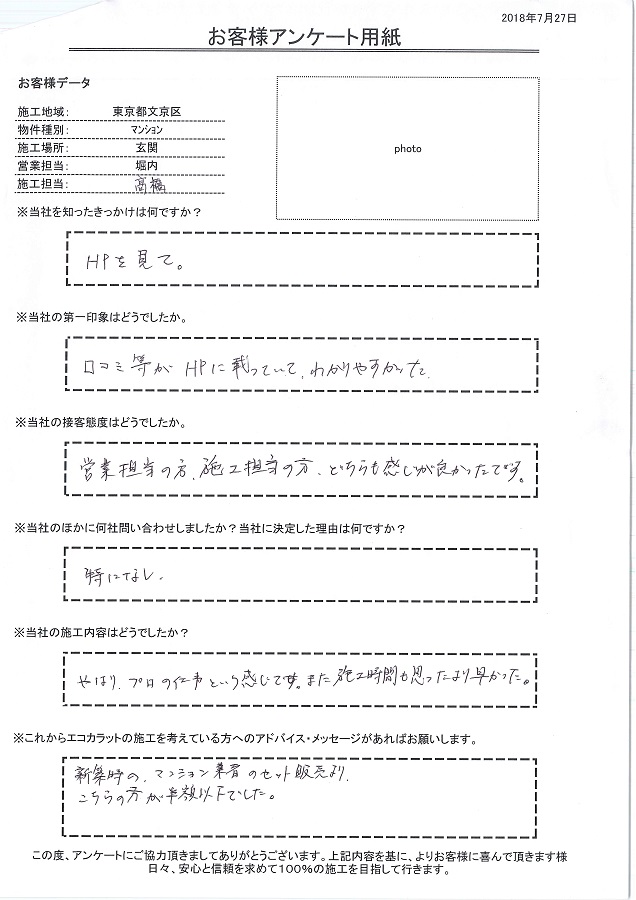 2018年7月27日
お客様アンケート用紙
お客様データ
施工地域: 東京都文京区
物件種別: マンション
施工場所: 玄関
営業担当: 堀内
施工担当: 高橋
photo
※当社を知ったきっかけは何ですか?
HPを見て。
※当社の第一印象はどうでしたか。
口コミ等がHPに載っていて、わかりやすかった。
※当社の接客態度はどうでしたか。
営業担当の方、施工担当の方、どちらも感じが良かったです。
※当社のほかに何社問い合わせしましたか?当社に決定した理由は何ですか?
特になし。
※当社の施工内容はどうでしたか?
やはり、プロの仕事という感じです。また施工時間も思ったより早かった。
※これからエコカラットの施工を考えている方へのアドバイス・メッセージがあればお願いします。
新築時の、マンション業者のセット販売より、
こちらの方が半額以下でした。
この度、アンケートにご協力頂きましてありがとうございます。上記内容を基に、よりお客様に喜んで頂きます様
日々、安心と信頼を求めて100%の施工を目指して行きます。